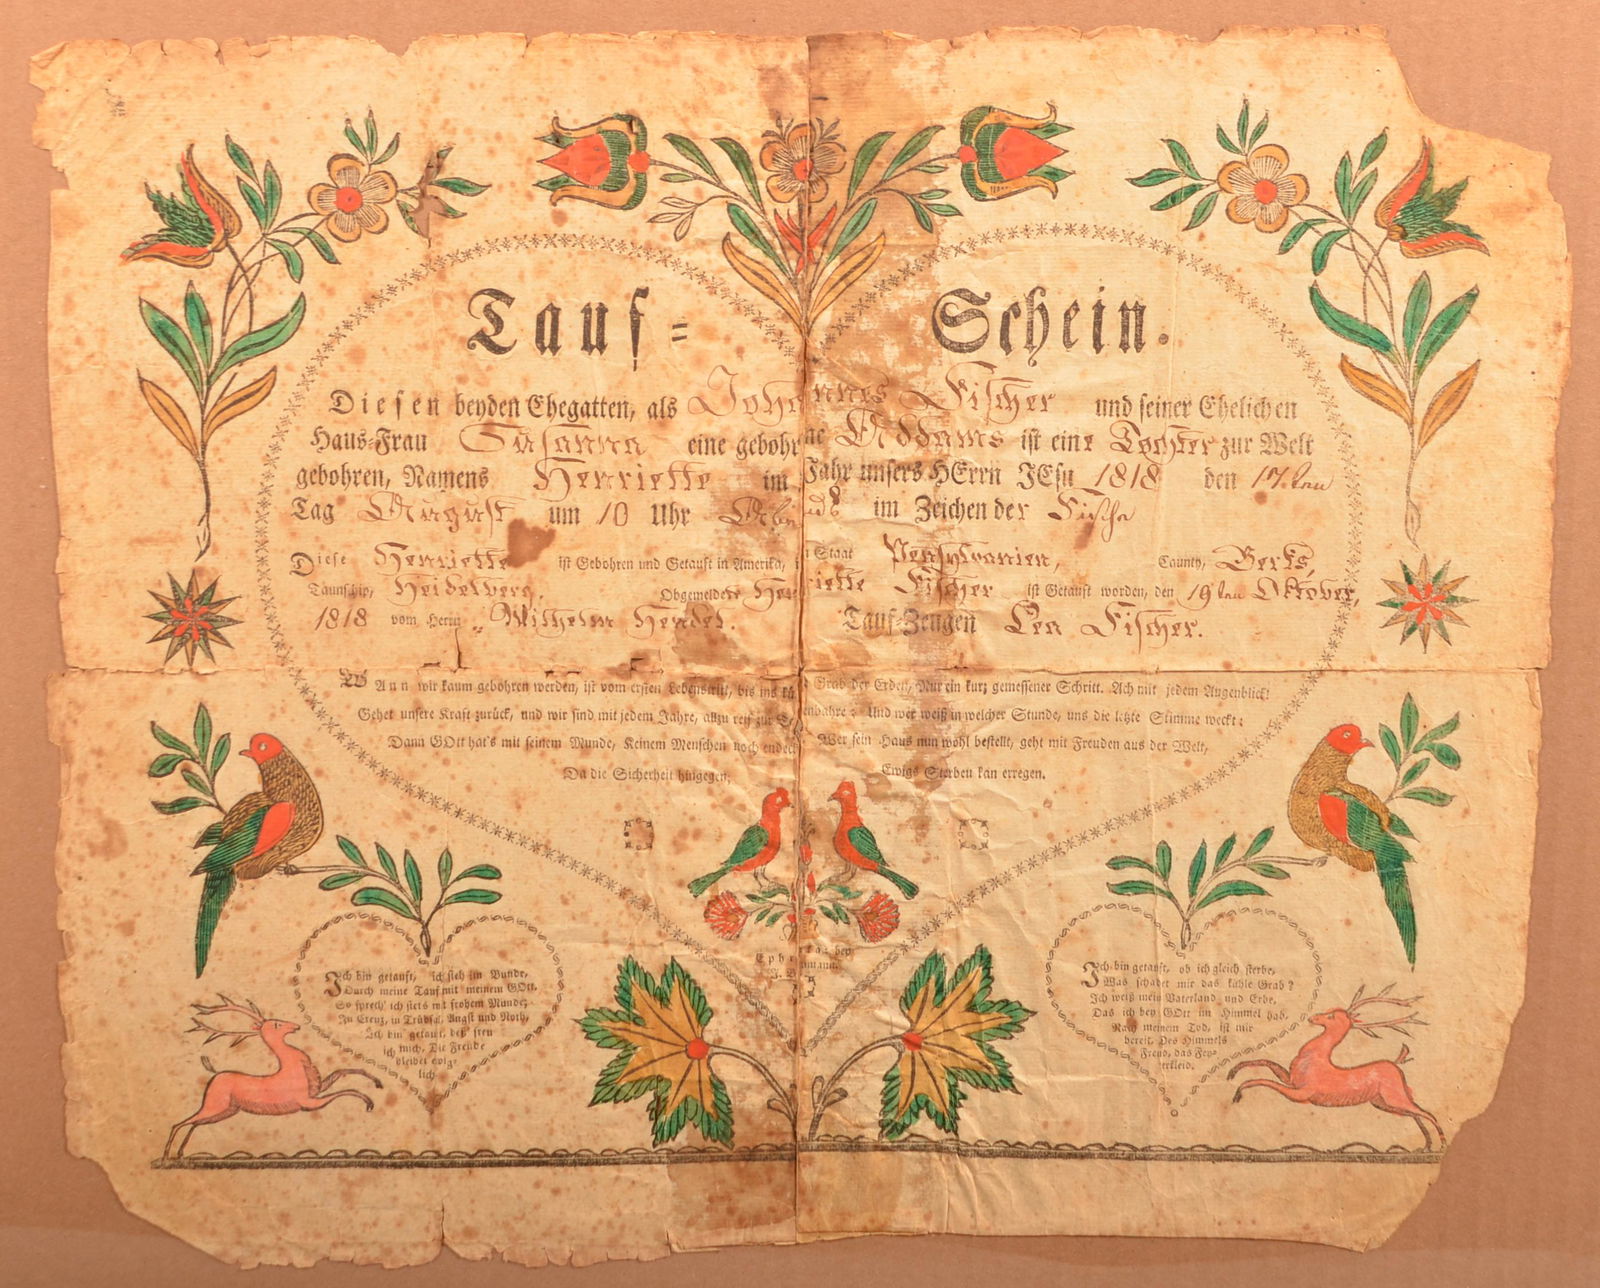 Tauf= Schein.
Diesen beyden Ehegatten, als Johannes Fischer und seiner Ehelichen
Haus=Frau Susanna eine gebohrne Addams ist eine Tochter zur Welt
gebohren, Namens Henriette im Jahr unsers HErrn JEsu 1818 den 17ten
Tag August um 10 Uhr Abends im Zeichen der Fische
Diese Henriette ist Gebohren und Getauft in Amerika, im Staat Pensylvanien, Caunty, Berks,
Taunschip, Heidelberg. Obgemeldete Henriette Fischer ist Getauft worden, den 19ten Oktober,
1818 vom Herrn Wilhelm Hendel. Tauf=Zeugen Lea Fischer.
WAnn wir kaum gebohren werden, ist vom ersten Lebenstritt, bis ins Grab der Erden, Nur ein kurz gemessener Schritt. Ach mit jedem Augenblick!
Gehet unsere Kraft zurück, und wir sind mit jedem Jahre, allzu reif zur Und wer weiß in welcher Stunde, uns die letzte Stimme weckt:
Dann GOtt hat's mit seinem Munde, Keinem Menschen noch endeckt Wer sein Haus nun wohl bestellt, geht mit Freuden aus der Welt,
Da die Sicherheit hingegen, Ewigs Sterben kan erregen.
Ephrata: bey
J. Baumann.
Ich bin getauft, ich steh im Bunde,
Durch meine Tauf mit meinem GOtt.
So sprech' ich stets mit frohem Munde,
In Creuz, in Trübsal, Angst und Noth,
Ich bin getauft, deß freu
ich mich, Die Freude
bleibet ewig=
lich
Ich bin getauft, ob ich gleich sterbe,
Was schadet mir das kühle Grab?
Ich weiß mein Vaterland und Erbe,
Das ich bey GOtt im Himmel hab,
Nach meinem Tod, ist mir
bereit, Des Himmels
Freud, das Fey=
erkleid.